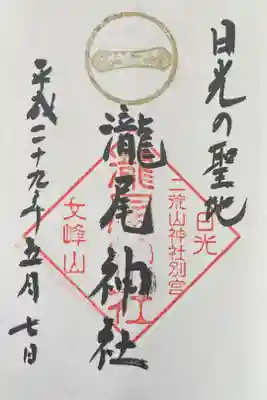 日光の聖地
瀧尾神社
平成二十九年五月七日
一
日光
二荒山神社別宮
瀧尾神社
女峰山